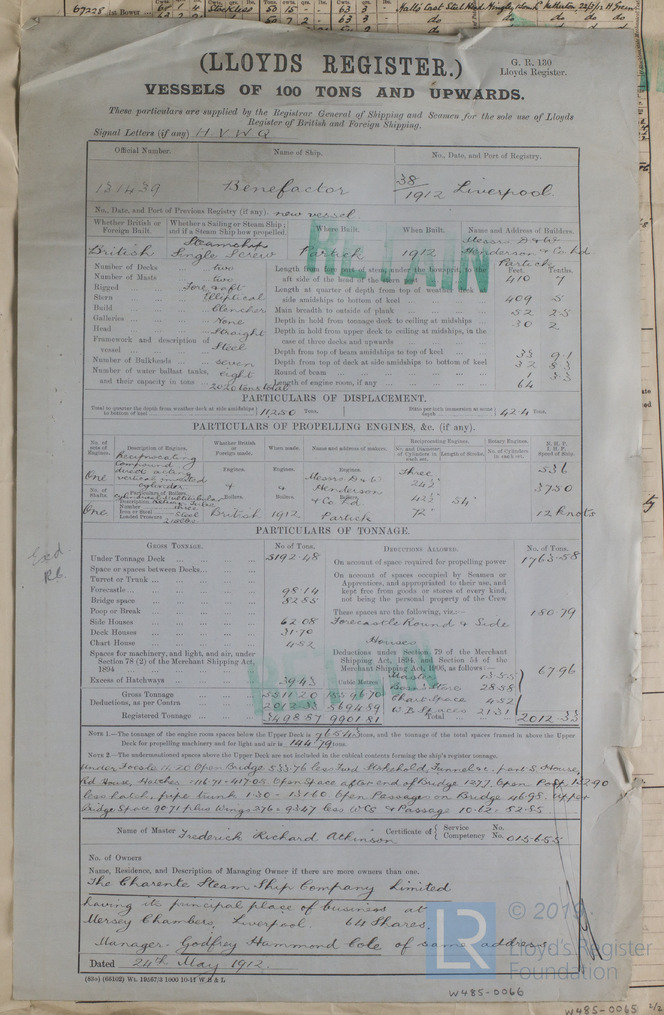 67228 1st Bower
Stockless
(LLOYDS REGISTER.)
G. R. 130
Lloyds Register.
VESSELS OF 100 TONS AND UPWARDS.
These particulars are supplied by the Registrar General of Shipping and Seamen for the sole use of Lloyds
Register of British and Foreign Shipping.
Signal Letters (if any) H.V.W.Q.
Official Number. Name of Ship. No., Date, and Port of Registry.
131439 Benefactor 38/1912 Liverpool.
No., Date, and Port of Previous Registry (if any) new vessel
Whether British or Foreign Built. Whether a Sailing or Steam Ship; and if a Steam Ship how propelled. Where Built. When Built. Name and Address of Builders.
British Steamship Single Screw Partick 1912 Messrs D & W Henderson & Co Ld Partick
RETAIN
Feet. Tenths.
Number of Decks two
Number of Masts two
Rigged Fore & aft
Stern Elliptical
Build Clencher
Galleries None
Head Straight
Framework and description of vessel Steel
Number of Bulkheads seven
Number of water ballast tanks, and their capacity in tons eight 2020 tons total
aft side of the head of the stern 410 7
Length at quarter of depth from top of weather deck at side amidships to bottom of keel 409 5
Main breadth to outside of plank 52 25
Depth in hold from tonnage deck to ceiling at midships 30 2
Depth in hold from upper deck to ceiling at midships, in the case of three decks and upwards
Depth from top of beam amidships to top of keel 33 91
Depth from top of deck at side amidships to bottom of keel 32 83
Round of beam 1 33
Length of engine room, if any 64
PARTICULARS OF DISPLACEMENT.
Total to quarter the depth from weather deck at side amidships to bottom of keel 11250 Tons. Ditto per inch immersion at same depth 42.4 Tons.
PARTICULARS OF PROPELLING ENGINES, &c. (if any).
No. of sets of Engines. Description of Engines. Whether British or Foreign made. When made. Name and address of makers. Reciprocating Engines. Rotary Engines. N.H.P. I.H.P. Speed of Ship.
No. and Diameter of Cylinders in each set. Length of Stroke. No. of Cylinders in each set.
One Reciprocating Compound direct acting vertical inverted cylinder
Engines. Engines. Engines.
Messrs D & W Henderson & Co Ld Partick
Three 536
24½" 3750
42½" 54"
72" 12 knots
No. of Shafts. Particulars of Boilers. Boilers. Boilers. Boilers.
Number three
Iron or Steel Steel
Loaded Pressure
One British 1912
PARTICULARS OF TONNAGE.
GROSS TONNAGE. No. of Tons. DEDUCTIONS ALLOWED. No. of Tons.
Under Tonnage Deck 5192.48
Space or spaces between Decks
Turret or Trunk
Forecastle 98.14
Bridge space 82.85
Poop or Break
Side Houses 62.08
Deck Houses 31.70
Chart House 4.52
Spaces for machinery, and light, and air, under Section 78 (2) of the Merchant Shipping Act, 1894
Excess of Hatchways 39.43 Cubic Metres.
Gross Tonnage 5511.20 15596.70
Deductions, as per Contra 2012.33 5694.89
Registered Tonnage 3498.87 9901.81
On account of space required for propelling power 1763.58
On account of spaces occupied by Seamen or Apprentices, and appropriated to their use, and kept free from goods or stores of every kind, not being the personal property of the Crew
These spaces are the following, viz.:— 180.79
Forecastle Round & Side Houses
Deductions under Section 79 of the Merchant Shipping Act, 1894, and Section 54 of the Merchant Shipping Act, 1906, as follows:—
Master 13.55
Bosn's Store 28.58
Chart Space 4.52
W.B. Spaces 21.31
67.96
Total 2012.33
RETAIN
NOTE 1.—The tonnage of the engine room spaces below the Upper Deck is 765.4 tons, and the tonnage of the total spaces framed in above the Upper
Deck for propelling machinery and for light and air is 144.79 tons.
NOTE 2.—The undermentioned spaces above the Upper Deck are not included in the cubical contents forming the ship's register tonnage.
Name of Master Frederick Richard Atkinson Certificate of { Service No. Competency No. 015655
No. of Owners
Name, Residence, and Description of Managing Owner if there are more owners than one.
The Charente Steam Ship Company Limited
having its principal place of business at
Mersey Chambers, Liverpool 64 Shares.
Manager: Godfrey Hammond Cole of same address
Dated 24th May 1912.
LR © 2019 Lloyd's Register Foundation
W485-0066
W485-0065